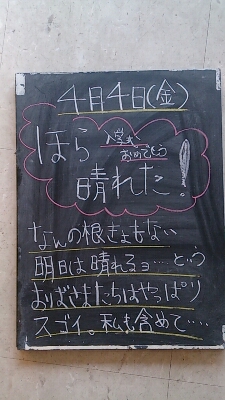 4月4日(金)
ほら
入学式
おめでとう
晴れた!
なんの根きょもない
明日は晴れるヨ…という
おりばさまたちはやっぱり
スゴイ。私も含めて‥‥